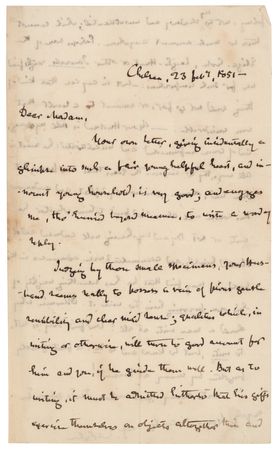 Chelsea, 23 feby, 1851—
Dear Madam,
Your own letter, giving incidentally a
glimpse into such a fair young helpful heart, and in-
nocent young household, is very good; and engages
me, tho' hurried beyond measure, to write a word of
reply.
Judging by those small specimens, your Hus-
band seems really to possess a vein of pious gentle
sensibility and clear mind sense; qualities which, in
writing or otherwise, will turn to good account for
him and you, if he guide them well. But as to
writing, it must be admitted hitherto that his gifts
exercise themselves on objects altogether thin and